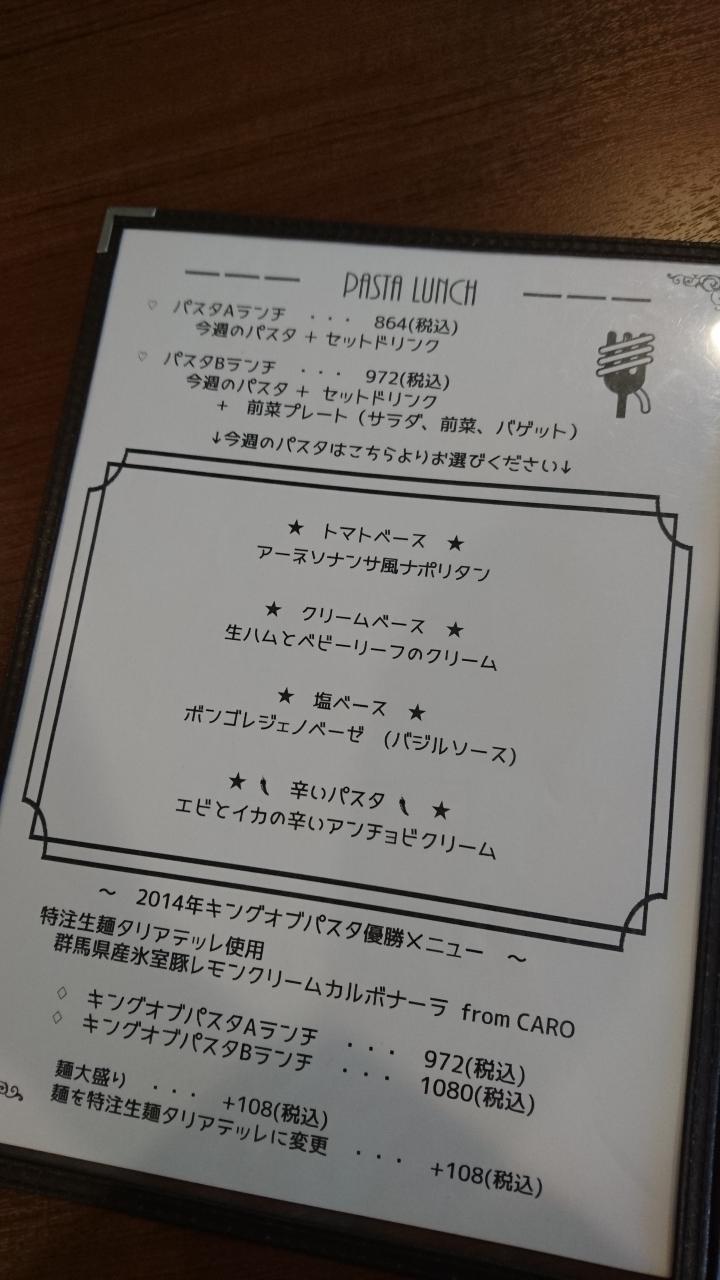 PASTA LUNCH
♡ パスタAランチ ・・・ 864(税込)
今週のパスタ + セットドリンク
♡ パスタBランチ ・・・ 972(税込)
今週のパスタ + セットドリンク
+ 前菜プレート（サラダ、前菜、バゲット）
↓今週のパスタはこちらよりお選びください↓
★ トマトベース ★
アーネソナンサ風ナポリタン
★ クリームベース ★
生ハムとベビーリーフのクリーム
★ 塩ベース ★
ボンゴレジェノベーゼ (バジルソース)
★ 辛いパスタ ★
エビとイカの辛いアンチョビクリーム
～ 2014年キングオブパスタ優勝メニュー ～
特注生麺タリアテッレ使用
群馬県産氷室豚レモンクリームカルボナーラ from CARO
♢ キングオブパスタAランチ ・・・ 972(税込)
♢ キングオブパスタBランチ ・・・ 1080(税込)
麺大盛り ・・・ +108(税込)
麺を特注生麺タリアテッレに変更 ・・・ +108(税込)